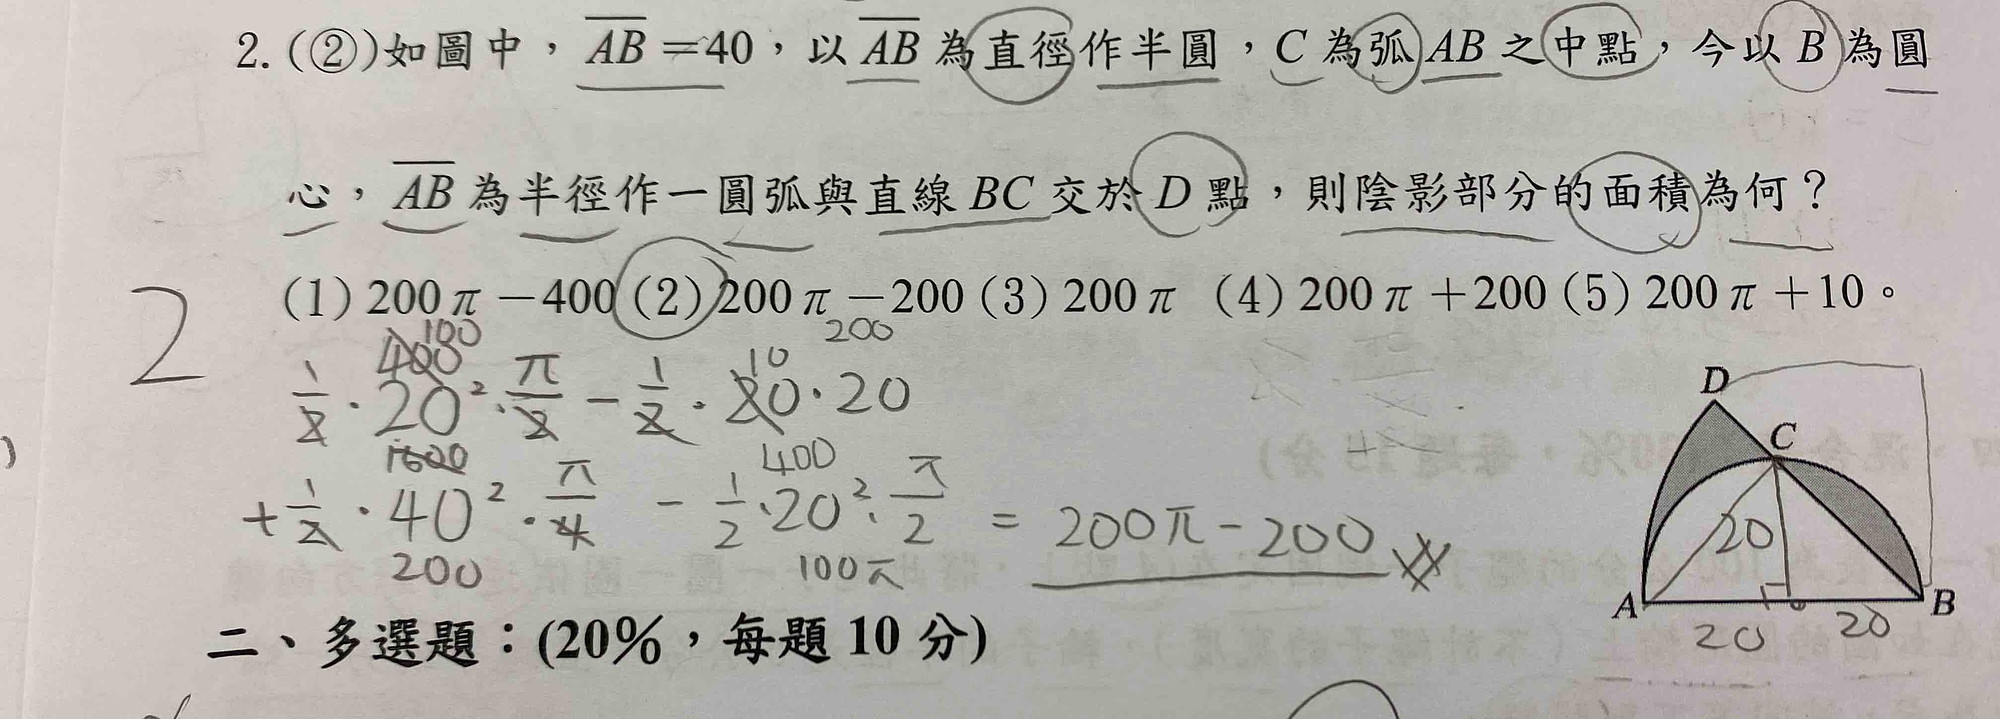 2. (②)如圖中，AB=40，以AB為直徑作半圓，C為弧AB之中點，今以B為圓
心，AB為半徑作一圓弧與直線BC交於D點，則陰影部分的面積為何？
2
(1)200π－400 (2)200π－200 (3)200π (4)200π＋200 (5)200π＋10。
100 200
400 10
1/2·20²·π/2－1/2·20·20
1600 400
+1/2·40²·π/4－1/2·20²·π/2＝200π－200
200 100π
D
C
20
A B
20 20
二、多選題：(20%，每題10分)